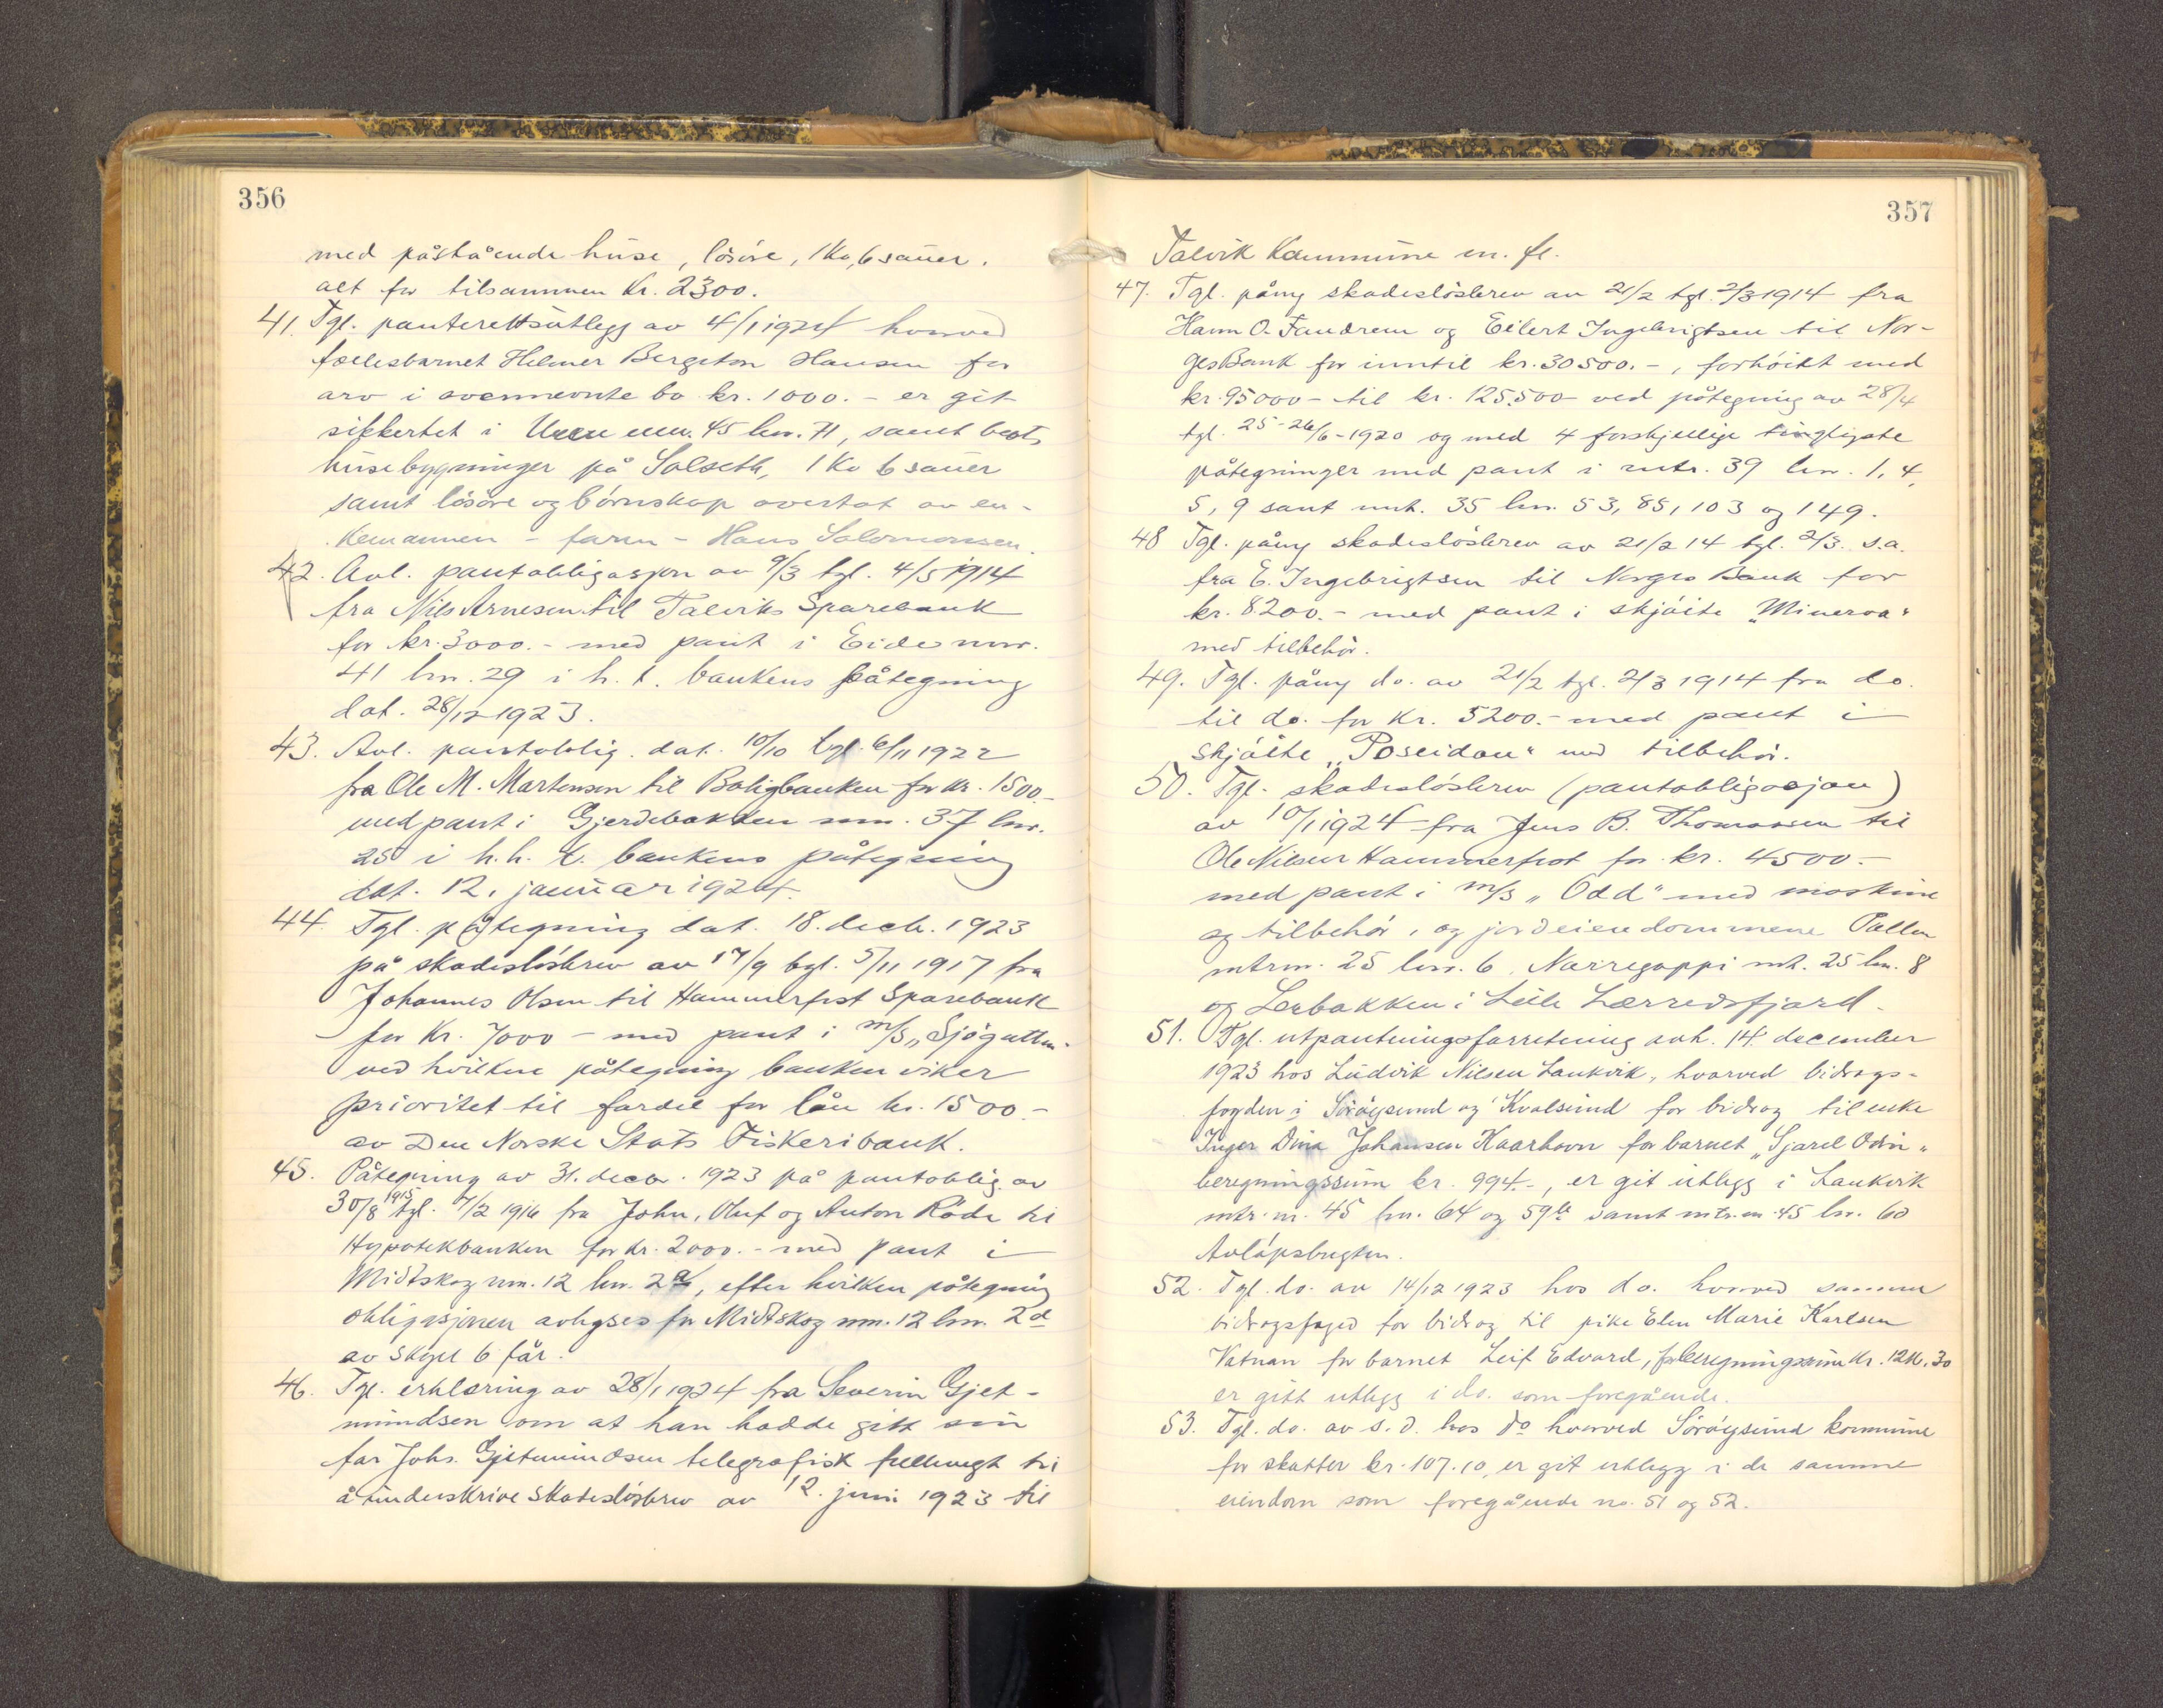 356
med påstående huse, lösöre, 1 ko, 6 sauer.
alt for tilsammen kr. 2300.
41. Tgl. panterettsutlegg av 4/1 1924 hvorved
fællesbarnet Helmer Bergeton Hansen for
arv i ovennevnte bo kr. 1000.- er git
sikkerhet i mnr. 45 bnr. 71, samt
husebygninger på Solseth, 1 ko 6 sauer
samt lösöre og börnskap overtat av en-
kemannen - faren - Hans Salomonsen.
42. Avl. pantobligasjon av 9/3 tgl. 4/5 1914
fra Nils Arnesen til Talviks Sparebank
for kr. 3000.- med pant i Eide mnr.
41 bnr. 29 i h. t. bankens påtegning
dat. 28/12 1923.
43. Avl. pantoblig. dat. 10/10 tgl. 6/11 1922
fra Ole M. Martensen til Boligbanken for kr. 1500.-
med pant i Gjerdebakken mnr. 37 bnr.
25 i h.h. t. bankens påtegning
dat. 12. januar 1924.
44. Tgl. påtegning dat. 18. decb. 1923
på skadeslösbrev av 17/9 tgl. 5/11 1917 fra
Johannes Olsen til Hammerfest Sparebank
for Kr. 7000 - med pant i m/s „Sjögutten"
ved hvilken påtegning banken viker
prioritet til fordel for lån kr. 1500.-
av Den Norske Stats Fiskeribank.
45. Påtegning av 31. decbr. 1923 på pantoblig. av
30/8 1915 tgl. 7/2 1916 fra John, Oluf og Anton Röde til
Hypotekbanken for kr. 2000.- med pant i
Midtskog mn. 12 bnr. 2a, efter hvilken påtegning
obligasjonen avlyses for Midtskog mn. 12 bnr. 2d
av skyld 6 før.
46. Tgl. erklæring av 28/1 1924 fra Severin Gjet-
mundsen om at han hadde gitt sin
far Johs. Gjetmundsen telegrafisk fullmagt til
å underskrive skadeslösbrev av 12. juni 1923 til
357
Talvik kommune m. fl.
47. Tgl. påny skadeslösbrev av 21/2 tgl. 2/3 1914 fra
O. Fandrem og Eilert Ingebrigtsen til Nor-
ges Bank for inntil kr. 30500.-, forhöiet med
kr. 95000- til kr. 125500- ved påtegning av 28/4
tgl. 25-26/6-1920 og med 4 forskjellige tinglyste
påtegninger med pant i mtr. 39 bnr. 1, 4,
5, 9 samt mnt. 35 bnr. 53, 85, 103 og 149.
48 Tgl. påny skadeslösbrev av 21/2 14 tgl. 2/3 s.a.
fra E. Ingebrigtsen til Norges Bank for
kr. 8200.- med pant i skjöite „Minerva"
med tilbehör.
49. Tgl. påny do. av 21/2 tgl. 2/3 1914 fra do.
til do. for kr. 5200.- med pant i
skjöite „Poseidon" med tilbehör.
50. Tgl. skadeslösbrev (pantobligasjon)
av 10/1 1924 fra Jens B. Thomassen til
Ole Nilsen Hammerfest for kr. 4500.-
med pant i m/s „Odd" med maskine
og tilbehör, og jordeiendommene Pollen
mtrnr. 25 bnr. 6, Narregoppi mt. 25 bn. 8
og Lerbakken i Lille Lærredsfjord.
51. Tgl. utpantningsforretning avh. 14. december
1923 hos Ludvik Nilsen Lankvik, hvorved bidrags-
fogden i Söröysund og Kvalsund for bidrag til enke
Inger Dina Johansen Kaarhavn for barnet „Gjard Odin"
beregningssum kr. 994.-, er git utlegg i Lankvik
mtr. n. 45 bn. 64 og 59 samt mtr. nr. 45 bn. 60
Avlöpsbugten.
52. Tgl. do. av 14/12 1923 hos do. hvorved samme
bidragsfoged for bidrag til pike Elen Marie Karlsen
Vatnan for barnet Leif Edvard, beregningssum kr. 1216.30
er gitt utlegg i do. som foregående.
53. Tgl. do. av s. d. hos do hvorved Söröysund kommune
for skatter kr. 107.10, er git utlegg i de samme
eiendom som foregående no. 51 og 52.